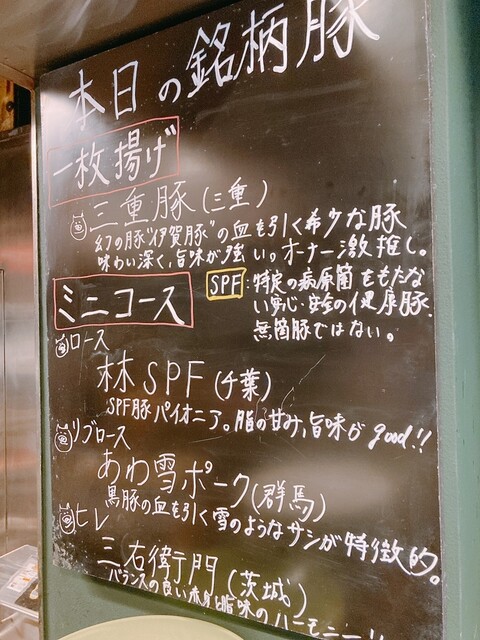 本日の銘柄豚
一枚揚げ
三重豚(三重)
幻の豚"伊賀豚"の血を引く希少な豚
味わい深く、旨味が強い。オーナー激推し。
SPF:特定の病原菌をもたな
い安心・安全の健康豚.
無菌豚ではない。
ミニコース
ロース
林SPF(千葉)
SPF豚パイオニア。脂の甘み,旨味がgood!!
リブロース
あわ雪ポーク(群馬)
黒豚の血を引く雪のようなサシが特徴的。
ヒレ
三右衛門(茨城)
バランスの良い赤身と脂味のハーモニー!!